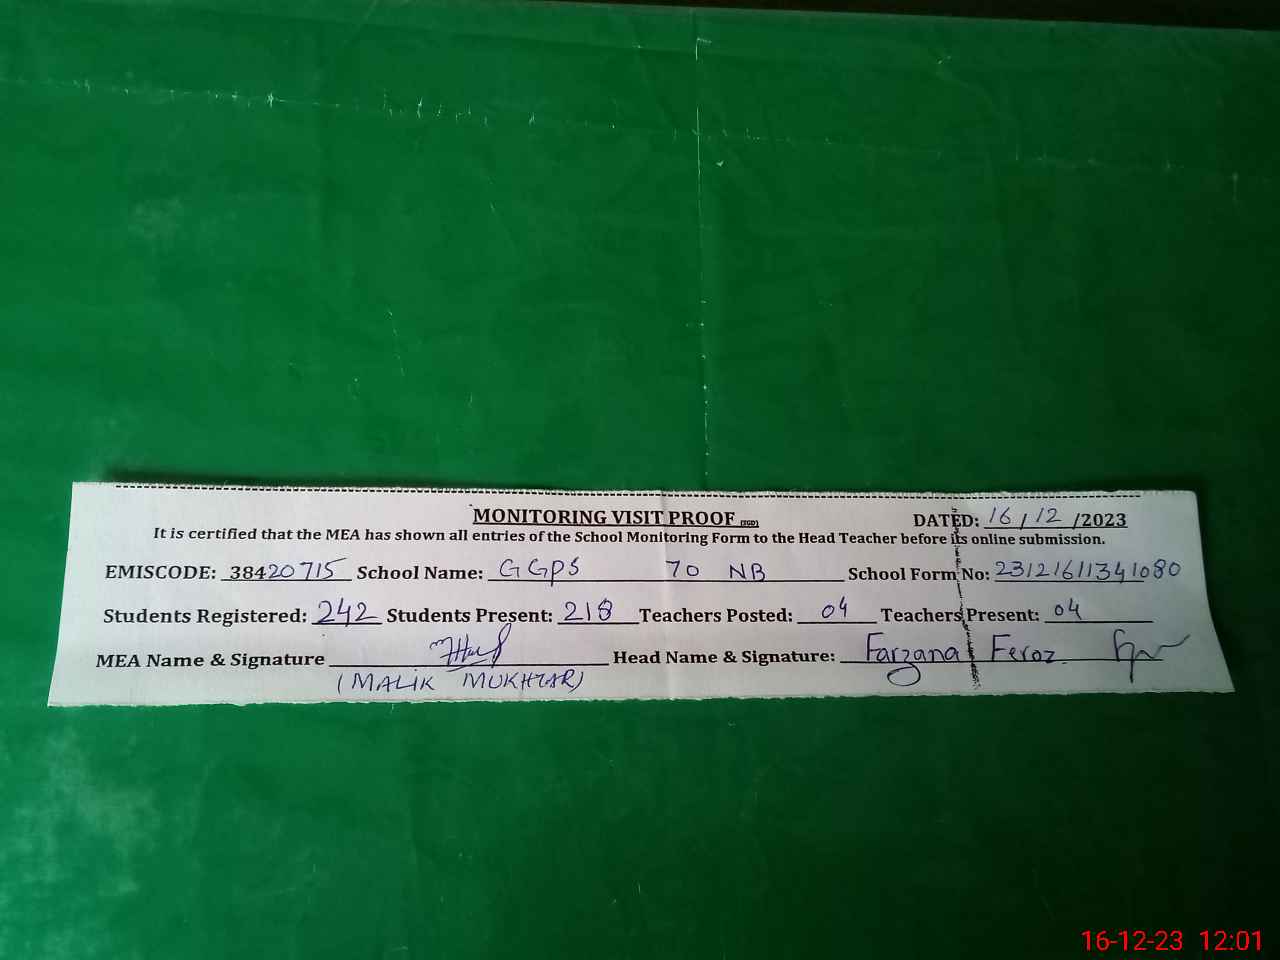 MONITORING VISIT PROOF (SGD) DATED: 16/12/2023
It is certified that the MEA has shown all entries of the School Monitoring Form to the Head Teacher before its online submission.
EMISCODE: 38420715 School Name: GGPS 70 NB School Form No: 23121611341080
Students Registered: 242 Students Present: 218 Teachers Posted: 04 Teachers Present: 04
MEA Name & Signature Head Name & Signature: Farzana Feroz
(MALIK MUKHTAR)
16-12-23 12:01